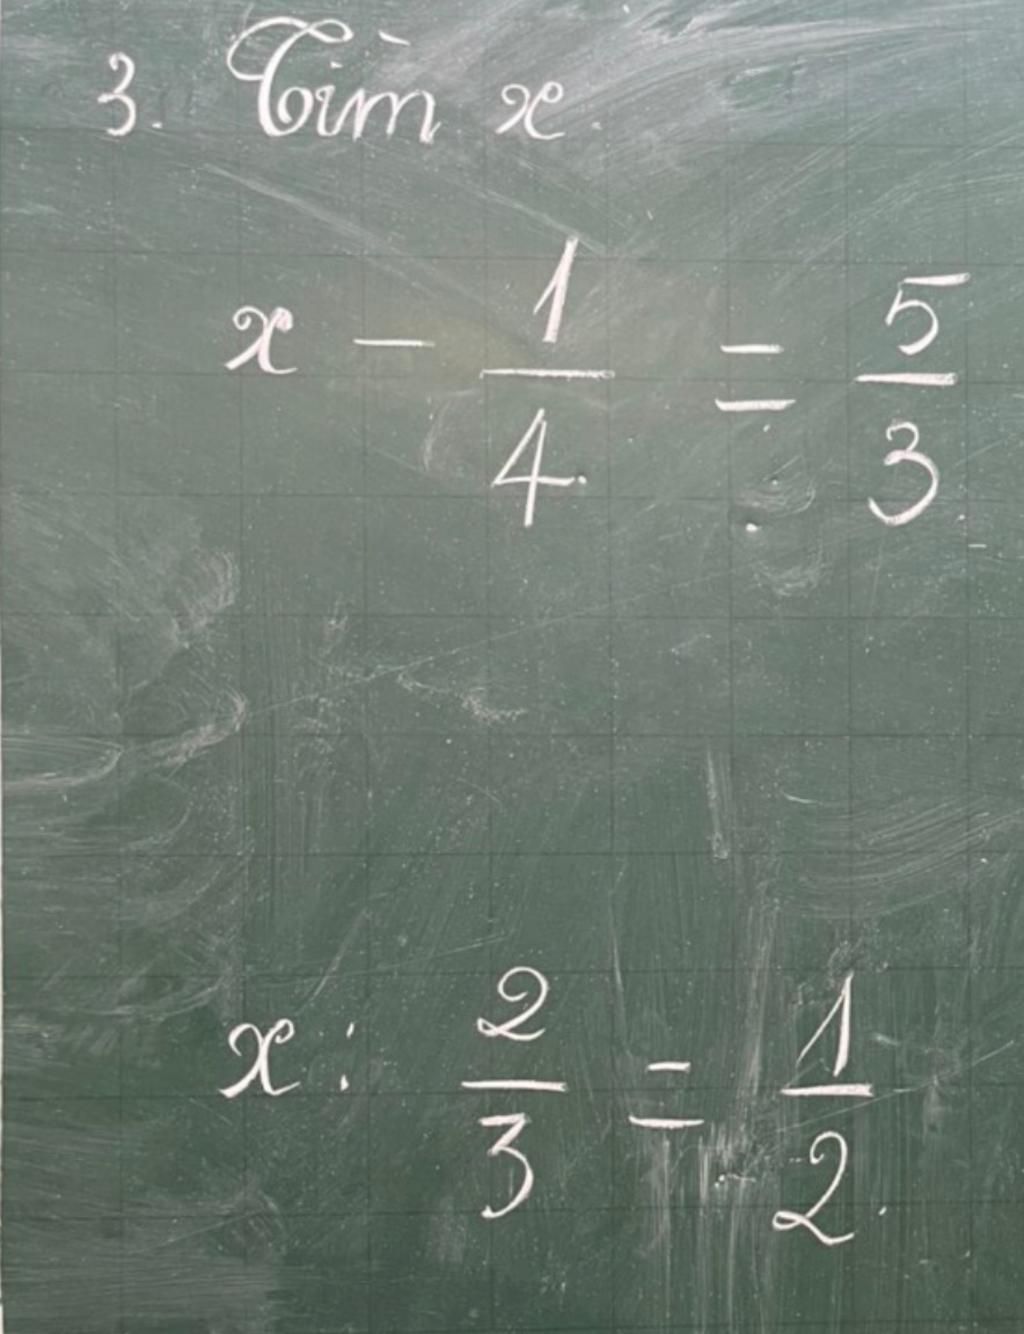 3. Tìm x.
x - 1/4 = 5/3
x : 2/3 = 1/2